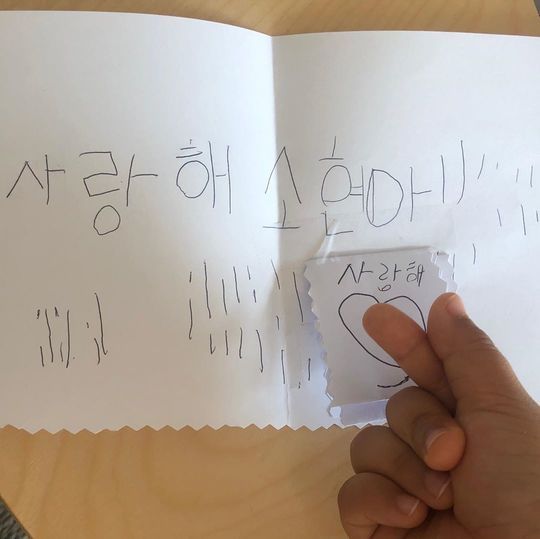 사랑해 소현아!!
사랑해